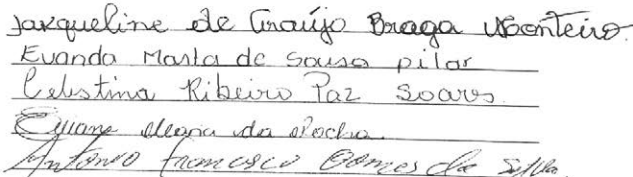 Jarqueline de Araújo Braga Monteiro
Evanda Maria de Sousa pilar
Celestina Ribeiro Paz Soares
Eliane Maria da Rocha
Antonio francisco Gomes da Silva